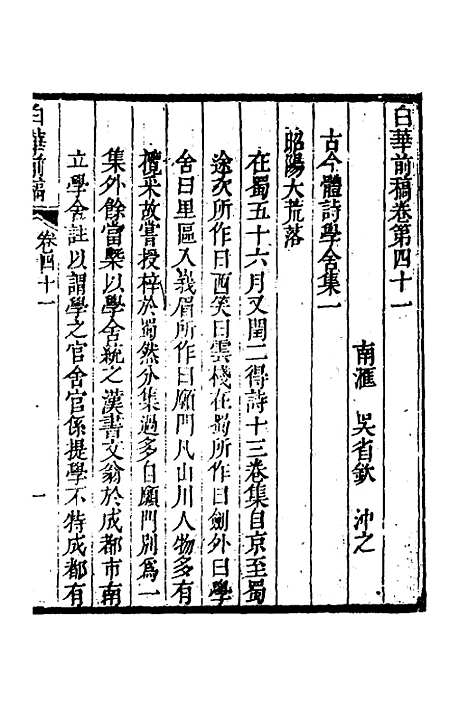 白華前稿卷第四十一
南滙 吳省欽 沖之
古今體詩學舍集一
昭陽大荒落
在蜀五十六月又閏二得詩十三卷集自京至蜀
途次所作曰西笑曰雲棧在蜀所作曰劍外曰學
舍曰里區入峩眉所作曰願門凡山川人物多有
攬采故嘗授梓於蜀然分集過多自願門別為一
集外餘當槩以學舍統之漢書文翁於成都市南
立學舍註以謂學之官舍官係提學不特成都有
白華前稿 卷四十一 一